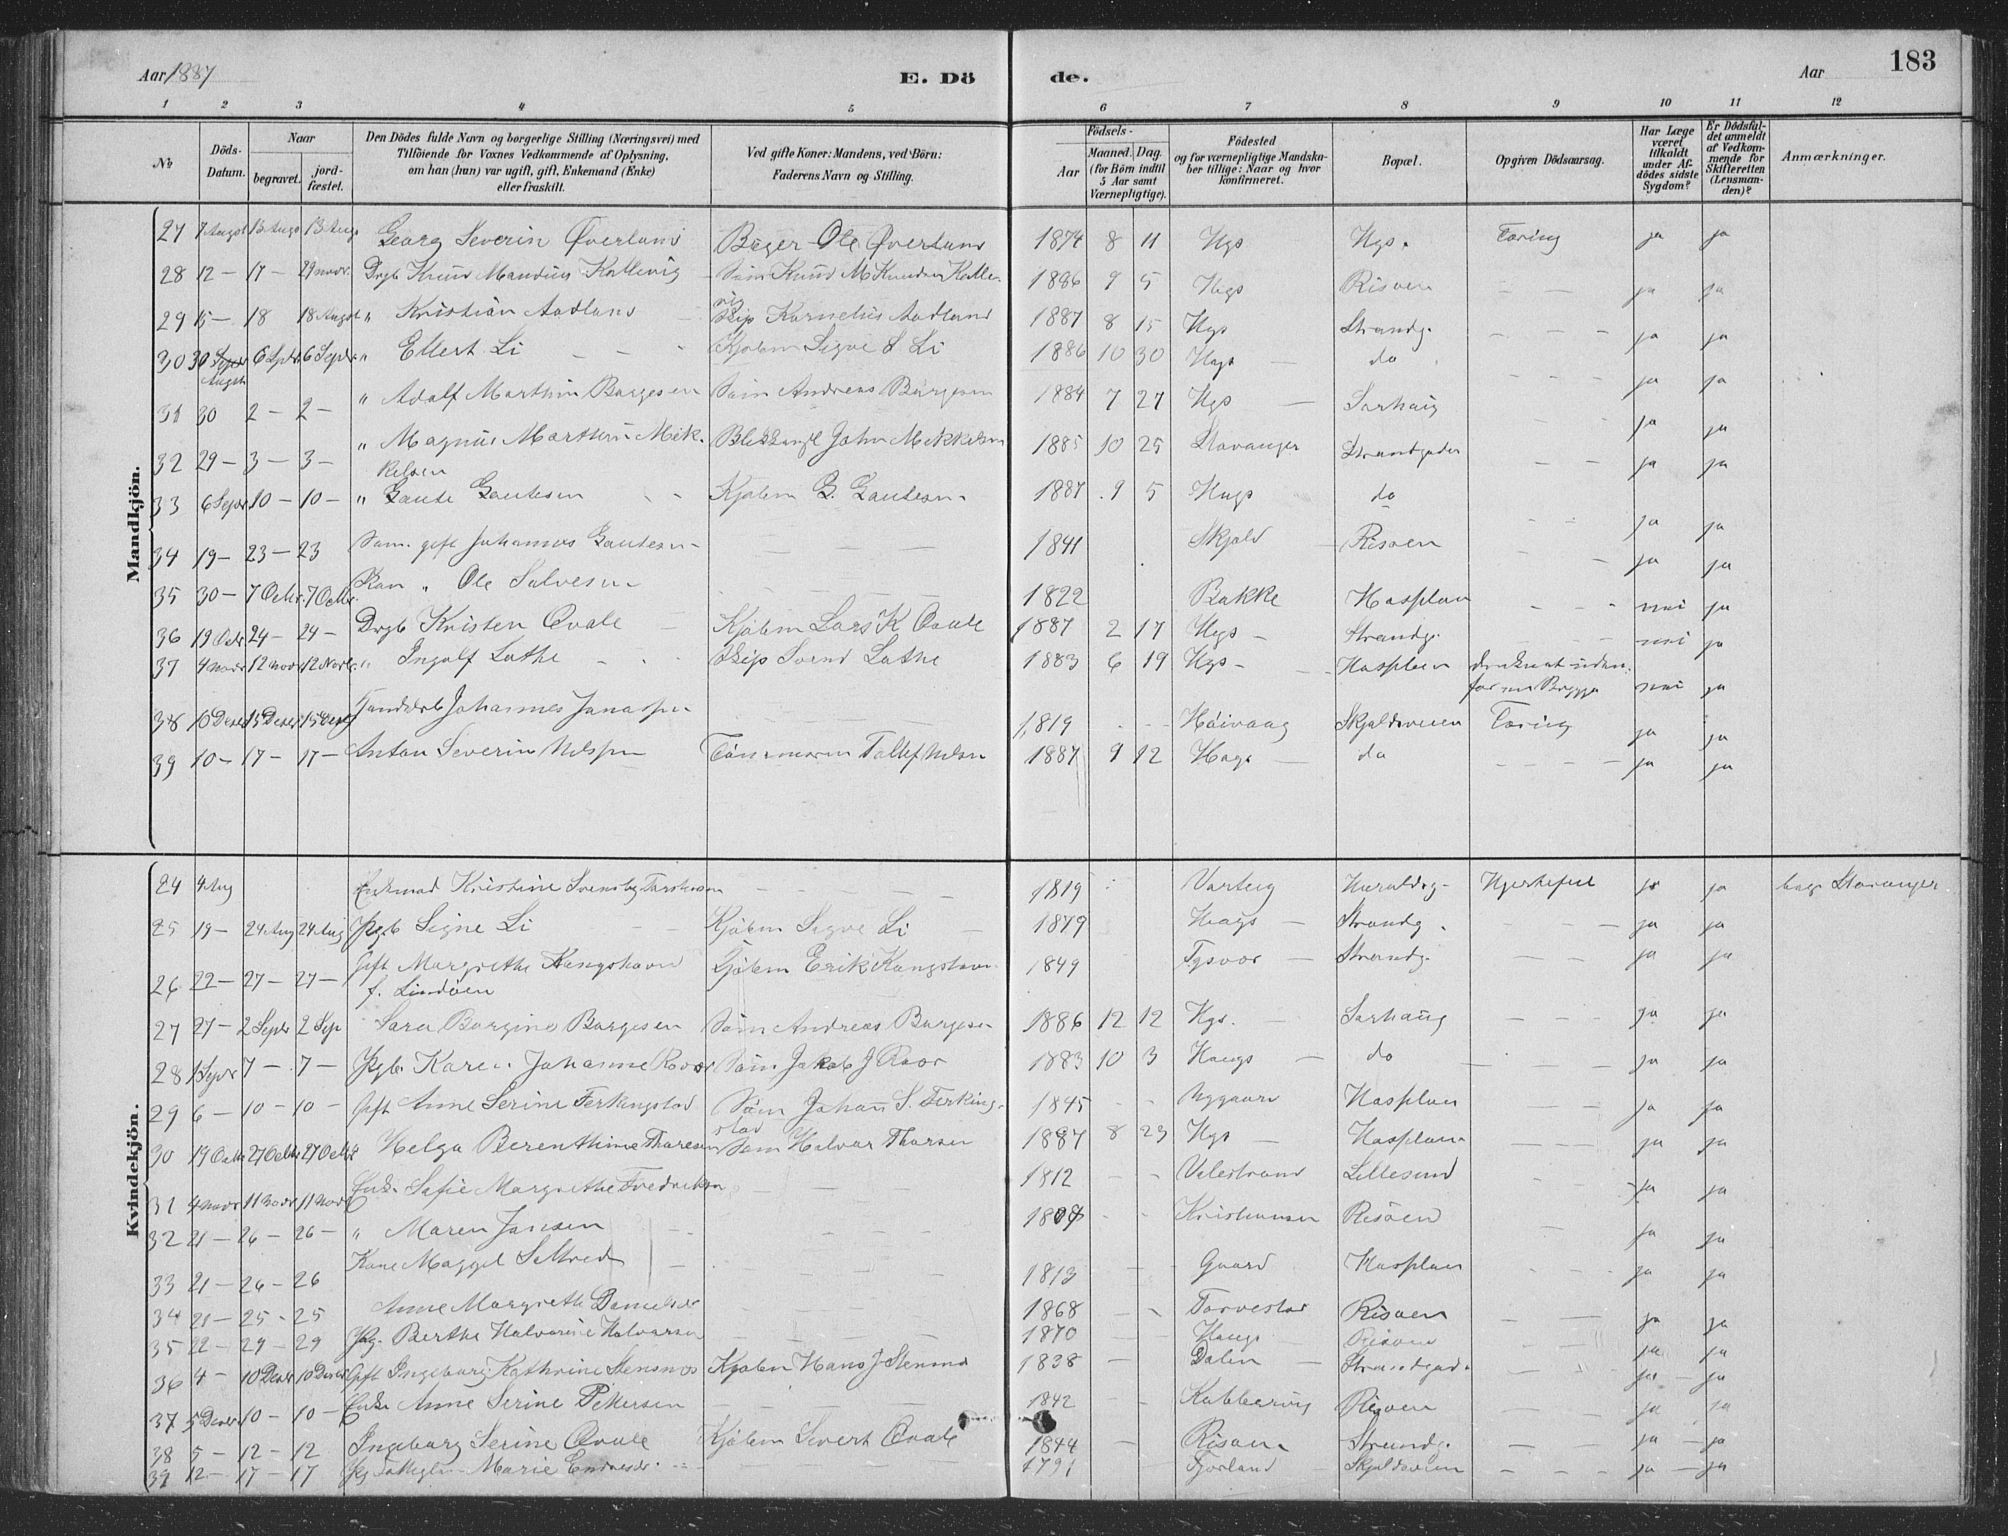 Aar 1887
E. Döde.
Aar
183
1 2 3 4 5 6 7 8 9 10 11 12
No
Döds-Datum.
Naar begravet. jordfæstet.
Den Dödes fulde Navn og borgerlige Stilling (Næringsvei) med Tilföiende for Voxnes Vedkommende af Oplysning, om han (hun) var ugift, gift, Enkemand (Enke) eller fraskilt.
Ved gifte Koner: Mandens, ved Börn: Faderens Navn og Stilling.
Födsels-
Aar
Maaned. Dag. (for Börn indtil 5 Aar samt Værnepligtige).
Födested og for værnepligtige Mandskaber tillige: Naar og hvor konfirmeret.
Bopæl.
Opgiven Dödsaarsag.
Har Læge været tilkaldt under Afdödes sidste Sygdom?
Er Dödsfaldet anmeldt af Vedkommende for Skifteretten (Lensmanden)?
Anmærkninger.
Mandkjön.
27 7 August 13 Augs 13 Augs Georg Severin Överland Ole Överland 1874 8 11 Hgs Hgs. Tæring ja ja
28 12 — 17 — 29 novr. Drgb Knud Mandius Kallevig Söm Knud M Knudsen Kallevig 1886 9 5 Hgs Risöen — — ja ja
29 15 — 18 18 Augst " Kristian Aadland Skip Kornelius Aadland 1887 8 15 Hgs Strandg. — — — ja ja
30 30 Augst 6 Sptr 6 Septr " Ellert Li Kjöbm Sigve S Li 1886 10 30 Hags — do — — — ja ja
31 30 2 — 2 — " Adolf Marthin Børgesen Söm Andreas Børgesen 1884 7 27 Hgs — Sørhaug ja ja
32 29 — 3 — 3 — " Magnus Marthin Mikkelsen John Mikkelsen 1885 10 25 Stavanger Strandgaden — — ja ja
33 6 Septr 10 — 10 — " Gaute Gautesen Kjøbm G. Gautesen 1887 9 5 Hags do — — ja ja
34 19 — 23 — 23 Søm. gift Johannes Gautesen — 1841 Skjold — Risøen — ja ja
35 30 — 7 Octbr. 7 Octbr. Ole Salvesen 1822 Bakke Hasplan — — — nei ja
36 19 Octr 24 — 24 — Drgb Kristen Qvale Kjöbm Lars K Qvale 1887 2 17 Hgs — Strandg. nei ja
37 4 novr 12 novr 12 Novr. " Ingolf Lothe Skip Svend Lothe 1883 6 19 Hgs — Hasplan druknet udenfor en Brygge nei ja
38 10 Decbr 15 Decbr 15 Decbr Johannes Jonassen 1819 — — Höivaag Skjoldeveien Tæring ja ja
39 10 — 17 — 17 — Anton Severin Nilssen Tollef Nilsen 1887 9 12 Hags — do — — — ja ja
Kvindekjön.
24 4 Aug Kristine Svensby Torstensen 1819 Haraldsg — Hjertefeil ja ja begr Stavanger
25 19 — 24 Aug 24 Aug Pgb Signe Li Kjöbm Sigve Li — 1879 Haugs — Strandg. ja ja
26 22 — 27 — 27 — Gift Margrethe Kongshavn f. Lindöen Kjöbm Erik Kongshavn 1849 Tysvær — Strandg. — ja ja
27 27 — 2 Septr 2 Sep Sara Børgine Børgesen Söm Andreas Børgesen 1886 12 12 Hgs. — Sørhaug — — — ja ja
28 1 Septr 7 — 7 — Pgb. Karen Johanne Roær Söm Jakob J Roær 1883 10 3 Haugs — do — — — ja ja
29 6 — 10 — 10 — Gift Anne Serine Ferkingstad Söm Johan S. Ferkingstad 1845 — — Nygaard Hasplan — — — ja ja
30 19 Octbr 27 Octbr 27 Octbr Helga Berenthine Thoresen Söm Halvor Thorsen 1887 8 23 Hgs — Hasplan — — — ja ja
31 4 novr 11 novr 11 novr Enke Sofie Margrethe Fredriksen 1812 — — Valestrand Lillesund ja ja
32 21 — 26 — 26 — " Maren Jansen Kristiansen Risøen — ja ja
33 21 — 26 — 26 Kone Maggel 1813 — Gaard Hasplan — — — ja ja
34 21 — 25 — 25 Anne Margrethe Danielsdr 1868 — — Torvestad Risøen — — ja ja
35 22 — 29 — 29 Pig. Berthe Halvorine Halvorsen 1870 Haugs Risøen — — ja ja
36 4 — 10 Decbr 10 Decbr Gift Ingeborg Kathrine Stensnes Kjøbm Hans J Stensnes 1838 — Dalen — Strandgad. — ja — ja
37 5 Decbr 10 — 10 — Enke Anne Serine Pettersen 1842 — Risøen — — ja ja
38 5 — 12 — 12 Ingeborg Serine Qvale Kjöbm Sivert Qvale 1844 — Risøen Strandg. — — ja — ja
39 12 — 17 — 17 Marie 1791 Fjorland — Skjoldeveien — — — ja — ja